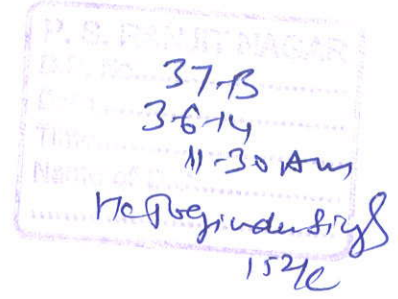 P. S. RANJIT NAGAR
D.D. No. 37-B
Date 3-6-14
Time 11-30 Am
Name of
HC Joginder Singh
152/C